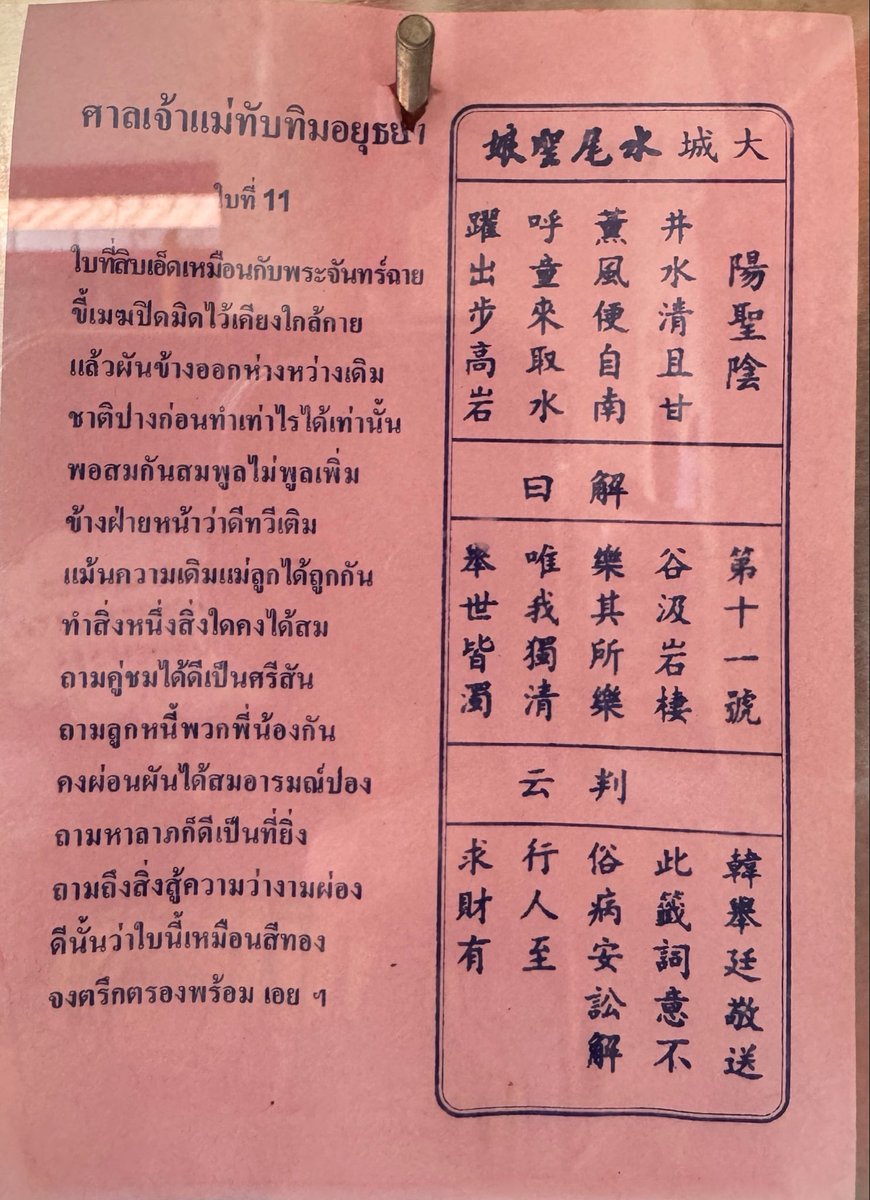 ศาลเจ้าแม่ทับทิมอยุธยา
ใบที่ 11
ใบที่สิบเอ็ดเหมือนกับพระจันทร์ฉาย
ขี้เมฆปิดมิดไว้เคียงใกล้กาย
แล้วผันข้างออกห่างหว่างเดิม
ชาติปางก่อนทำเท่าไรได้เท่านั้น
พอสมกันสมพูลไม่พูลเพิ่ม
ข้างฝ่ายหน้าว่าดีทวีเติม
แม้นความเดิมแม่ลูกได้ถูกกัน
ทำสิ่งหนึ่งสิ่งใดคงได้สม
ถามคู่ชมได้ดีเป็นศรีสัน
ถามลูกหนี้พวกพี่น้องกัน
คงผ่อนผันได้สมอารมณ์ปอง
ถามหาลาภก็ดีเป็นที่ยิ่ง
ถามถึงสิ่งสู้ความว่างามผ่อง
ดีนั้นว่าใบนี้เหมือนสีทอง
จงตรึกตรองพร้อม เอย ๆ
大城水尾聖娘
陽聖陰
井水清且甘
薰風便自南
呼童來取水
躍出步高岩
解曰
第十一號
谷汲岩棲
樂其所樂
唯我獨清
舉世皆濁
判云
韓舉廷敬送
此籤詞意不
俗病安訟解
行人至
求財有